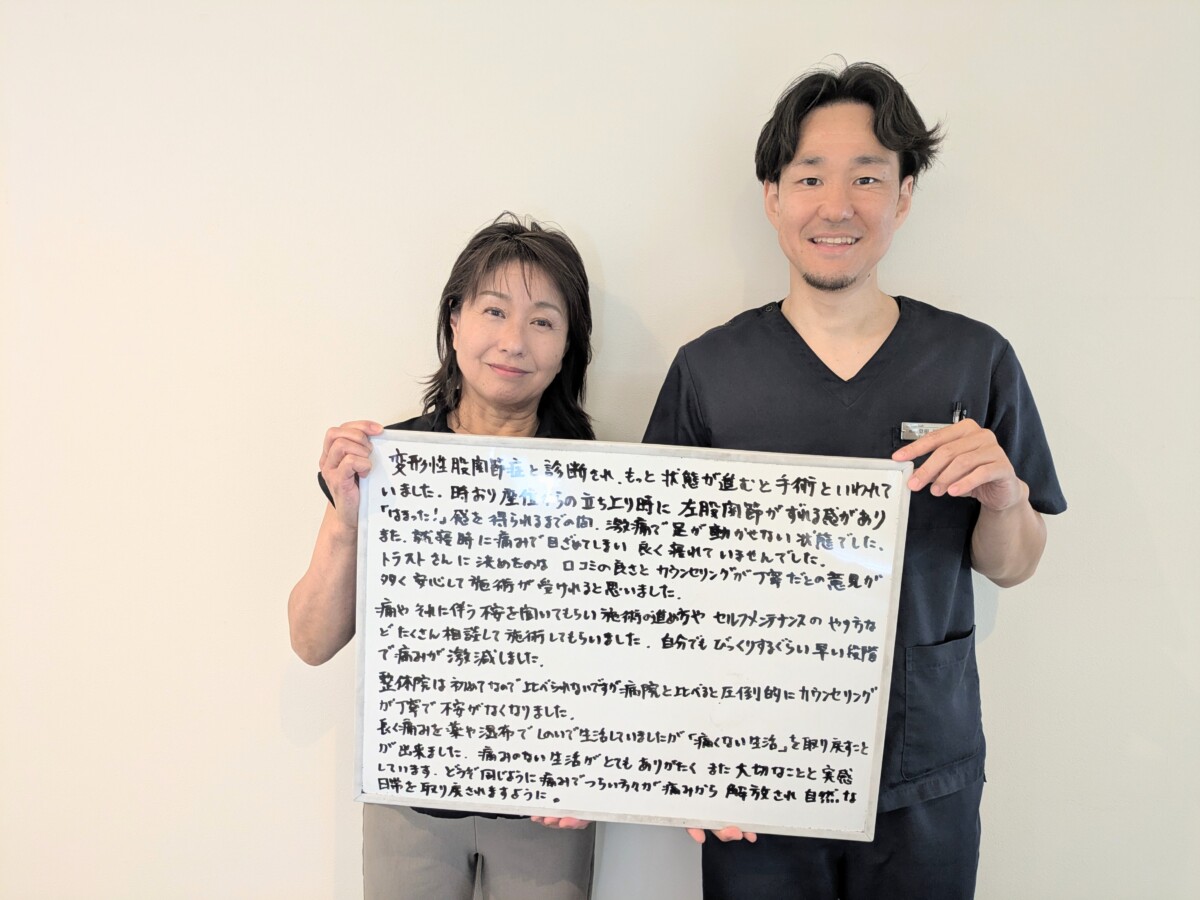 変形性股関節症と診断され、もっと状態が進むと手術といわれて
いました。時おり座位からの立ち上り時に左股関節がずれる感があり
「はまった!」感を得られるまでの間、激痛で足が動かせない状態でした。
また、就寝時に痛みで目ざめてしまい良く寝れていませんでした。
トラストさんに決めたのは口コミの良さとカウンセリングが丁寧だとの意見が
多く安心して施術が受けれると思いました。
痛やそれに伴う不安を聞いてもらい施術の進め方やセルフメンテナンスのやり方な
どたくさん相談して施術してもらいました。自分でもびっくりするぐらい早い段階
で痛みが激減しました。
整体院は初めてなので比べられないですが病院と比べると圧倒的にカウンセリング
が丁寧で不安がなくなりました。
長く痛みを薬や湿布でしのいで生活していましたが「痛くない生活」を取り戻すこと
が出来ました。痛みのない生活がとてもありがたくまた大切なことと実感
しています。どうぞ同じように痛みでつらい方々が痛みから解放され自然な
日常を取り戻されますように。